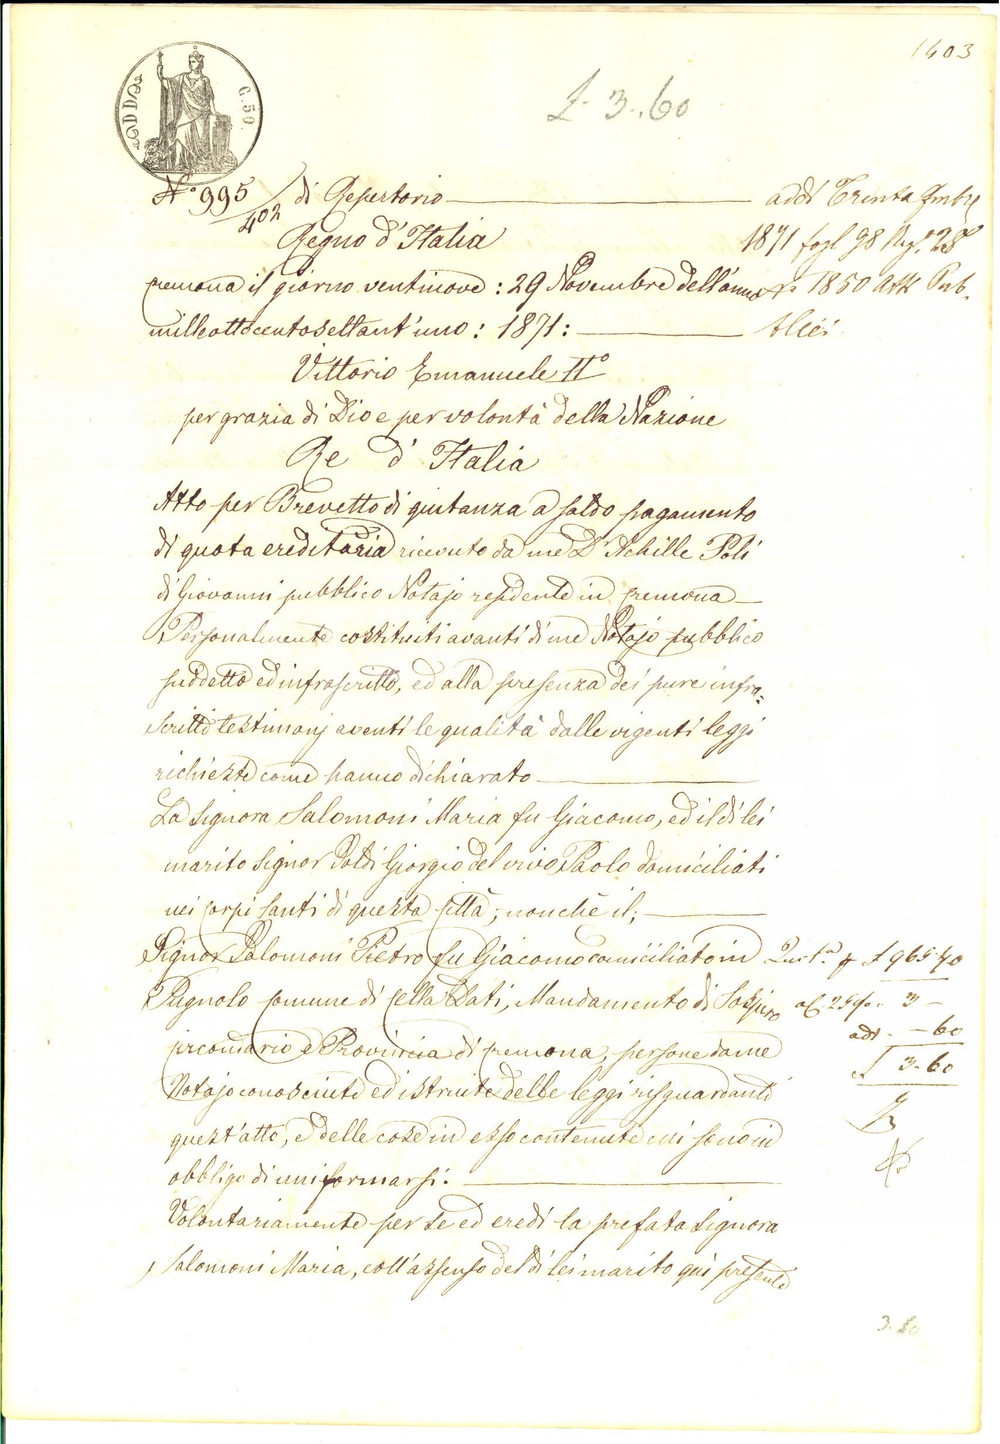 1403
£ 3.60
DD
C. 50.
N.o 995/402 di Repertorio
addi Trenta 9mbre
Regno d'Italia
1871 fogl 98 Reg.o 28
Cremona il giorno ventinove: 29 Novembre dell'anno
No 1850 Atti Pub-
milleottocentosettant'uno: 1871:
blici
Vittorio Emanuele II°
per grazia di Dio e per volontà della Nazione
Re d'Italia
Atto per Brevetto di quitanza a saldo pagamento
di quota ereditaria ricevuto da me Dr Achille Poli
di Giovanni pubblico Notajo residente in Cremona
Personalmente costituiti avanti di me Notajo pubblico
suddetto ed infrascritto, ed alla presenza dei pure infra=
scritti testimonj aventi le qualità dalle vigenti leggi
richieste come hanno dichiarato
La Signora Salomoni Maria fu Giacomo, ed il di lei
marito Signor Poldi Giorgio del vivo Paolo domiciliati
nei Corpi Santi di questa Città; nonchè il;
Signor Salomoni Pietro fu Giacomo domiciliato in
Quit.a £ 965.70
Pugnolo Comune di Cella Dati, Mandamento di Sospiro
3 -
Circondario e Provincia di Cremona, persone da me
- 60
Notajo conosciute ed istruite delle leggi risguardanti
£ 3.60
quest'atto, e delle cose in esso contenute cui sono in
obbligo di uniformarsi.
Volontariamente per se ed eredi la prefata Signora
Salomoni Maria, coll'assenso del di lei marito qui presente
3.60